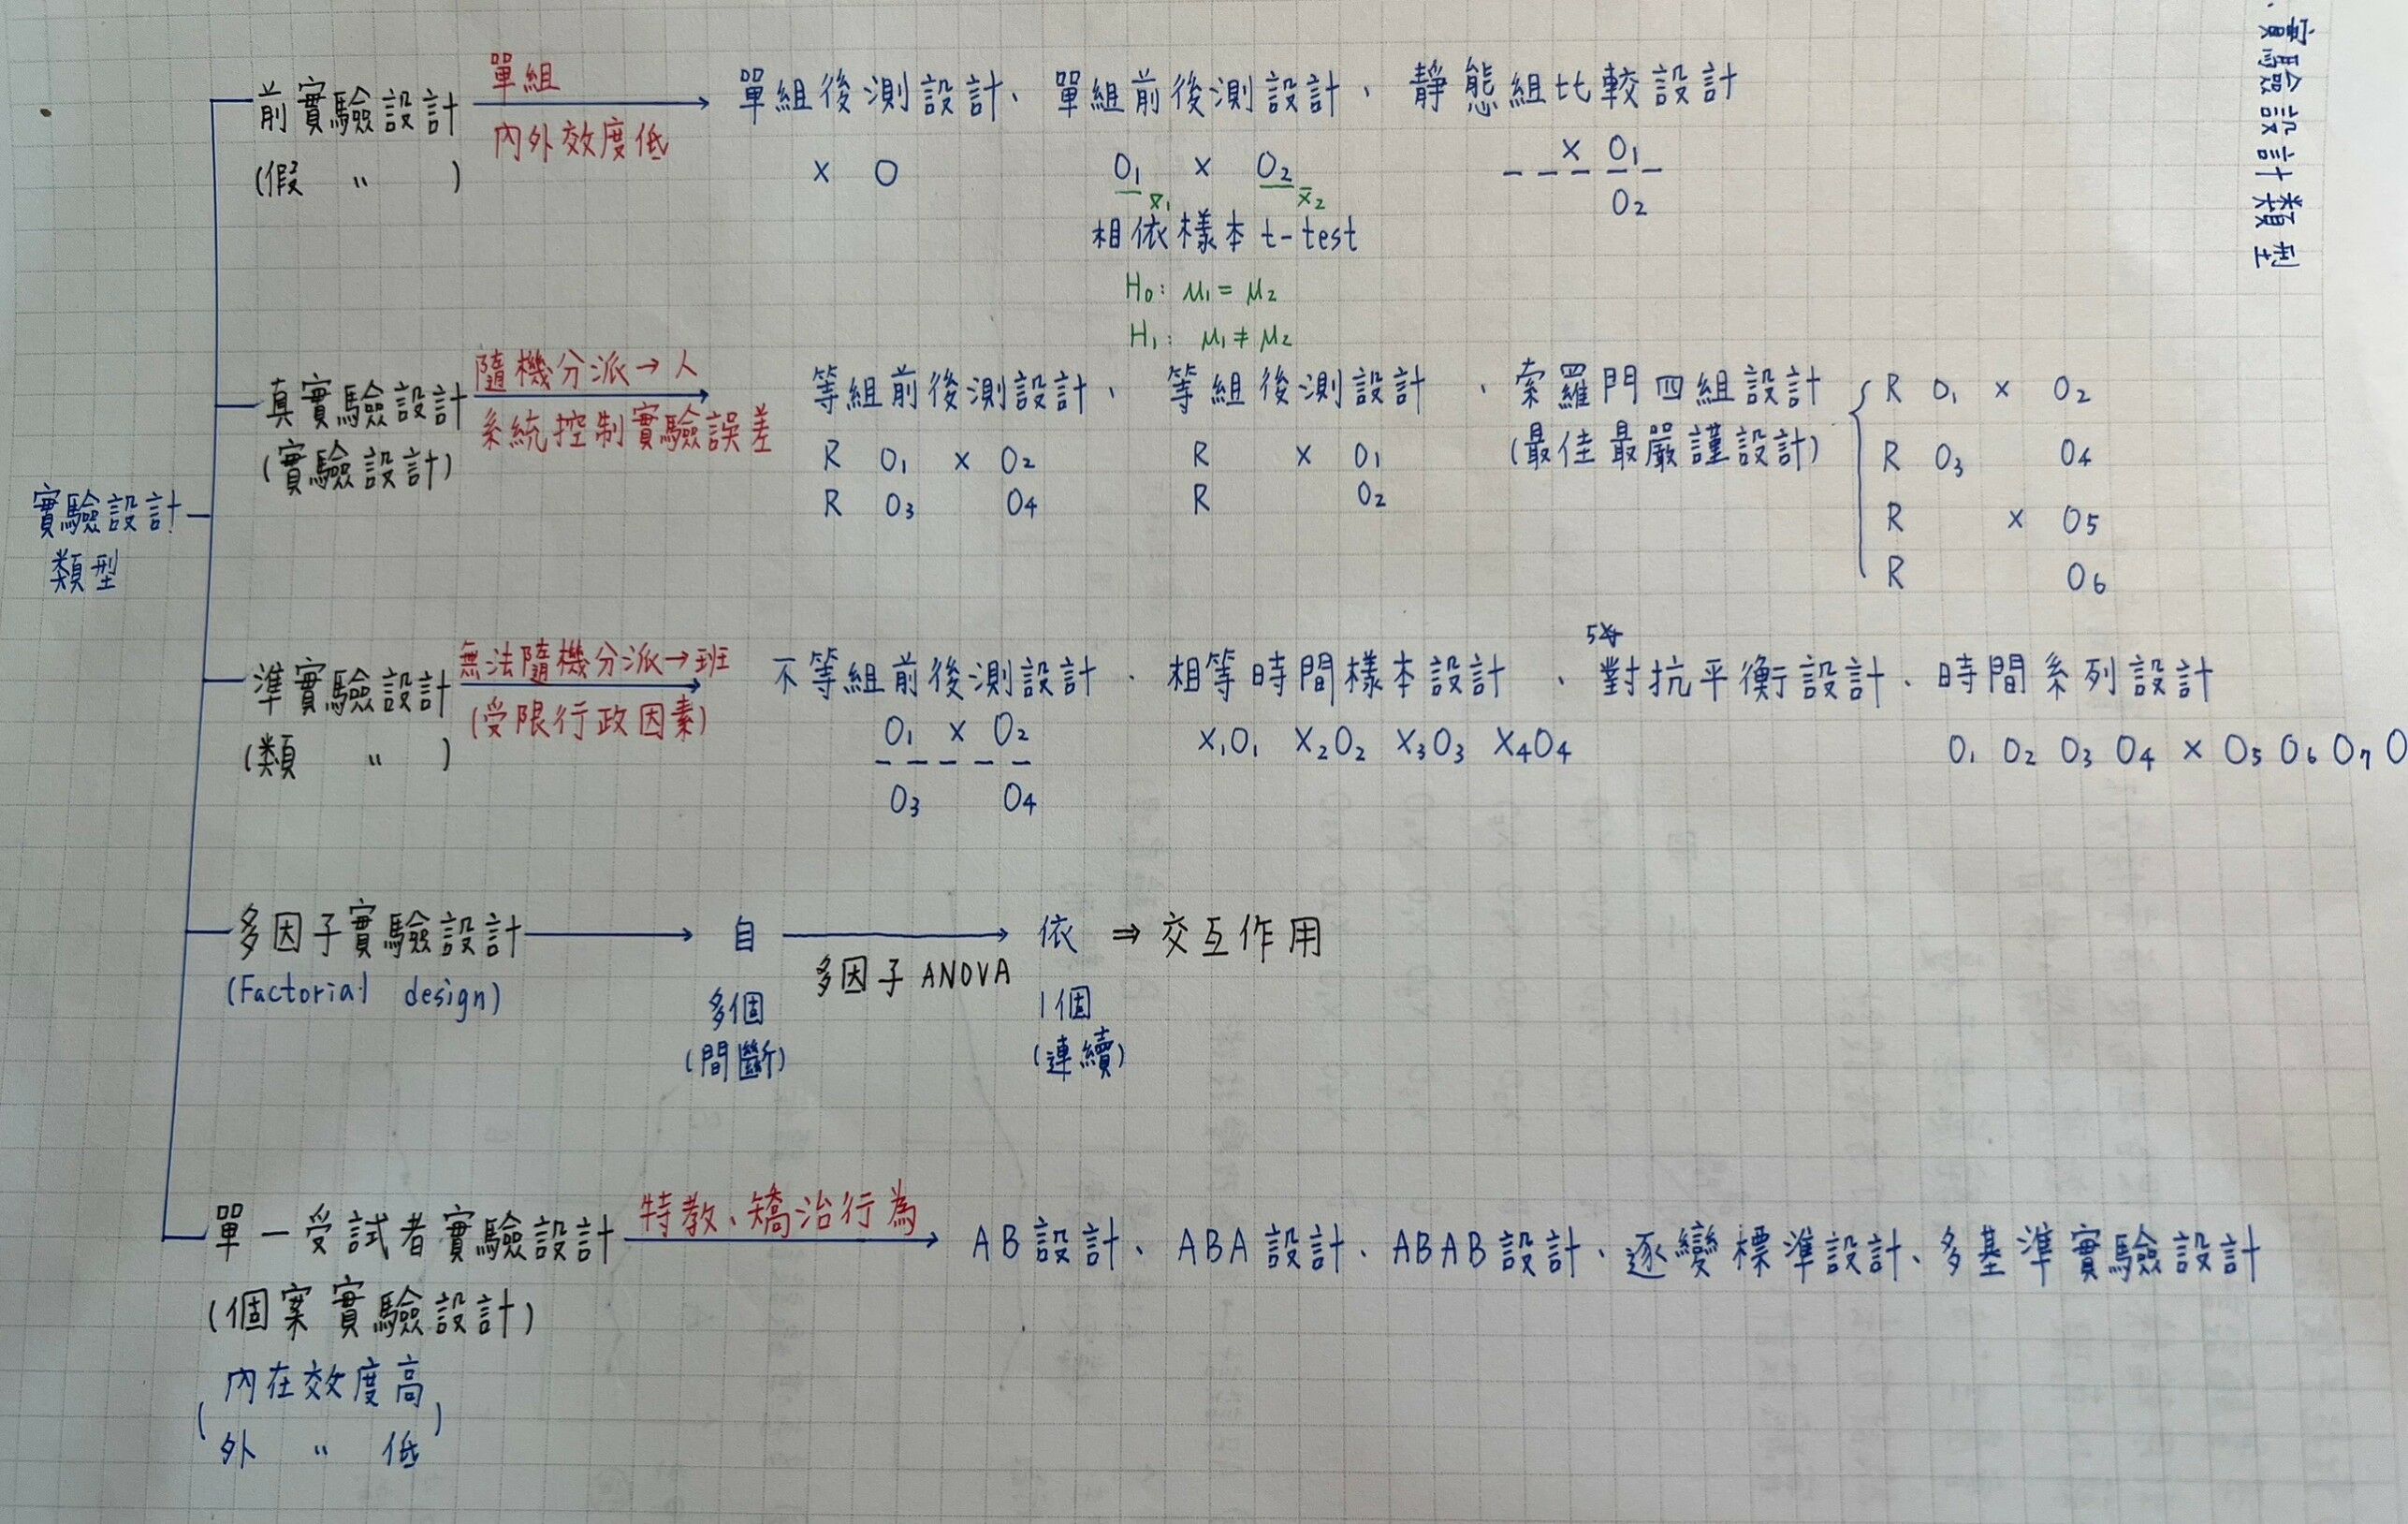 、實驗設計類型
實驗設計
類型
前實驗設計
(假 〃 )
單組
內外效度低
單組後測設計、單組前後測設計、靜態組比較設計
X O
O₁ X O₂
X̄₁ X̄₂
相依樣本 t-test
H₀: μ₁ = μ₂
H₁: μ₁ ≠ μ₂
X O₁
O₂
真實驗設計
(實驗設計)
隨機分派→人
系統控制實驗誤差
等組前後測設計、等組後測設計、索羅門四組設計
(最佳最嚴謹設計)
R O₁ X O₂
R O₃ O₄
R X O₁
R O₂
R O₁ X O₂
R O₃ O₄
R X O₅
R O₆
準實驗設計
(類 〃 )
無法隨機分派→班
(受限行政因素)
不等組前後測設計、相等時間樣本設計、對抗平衡設計、時間系列設計
O₁ X O₂
O₃ O₄
X₁O₁ X₂O₂ X₃O₃ X₄O₄
O₁ O₂ O₃ O₄ X O₅ O₆ O₇ O
多因子實驗設計
(Factorial design)
自 → 依 ⇒ 交互作用
多因子 ANOVA
多個
(間斷)
1個
(連續)
單一受試者實驗設計
(個案實驗設計)
(內在效度高
外 〃 低)
特教、矯治行為
AB設計、ABA設計、ABAB設計、逐變標準設計、多基準實驗設計